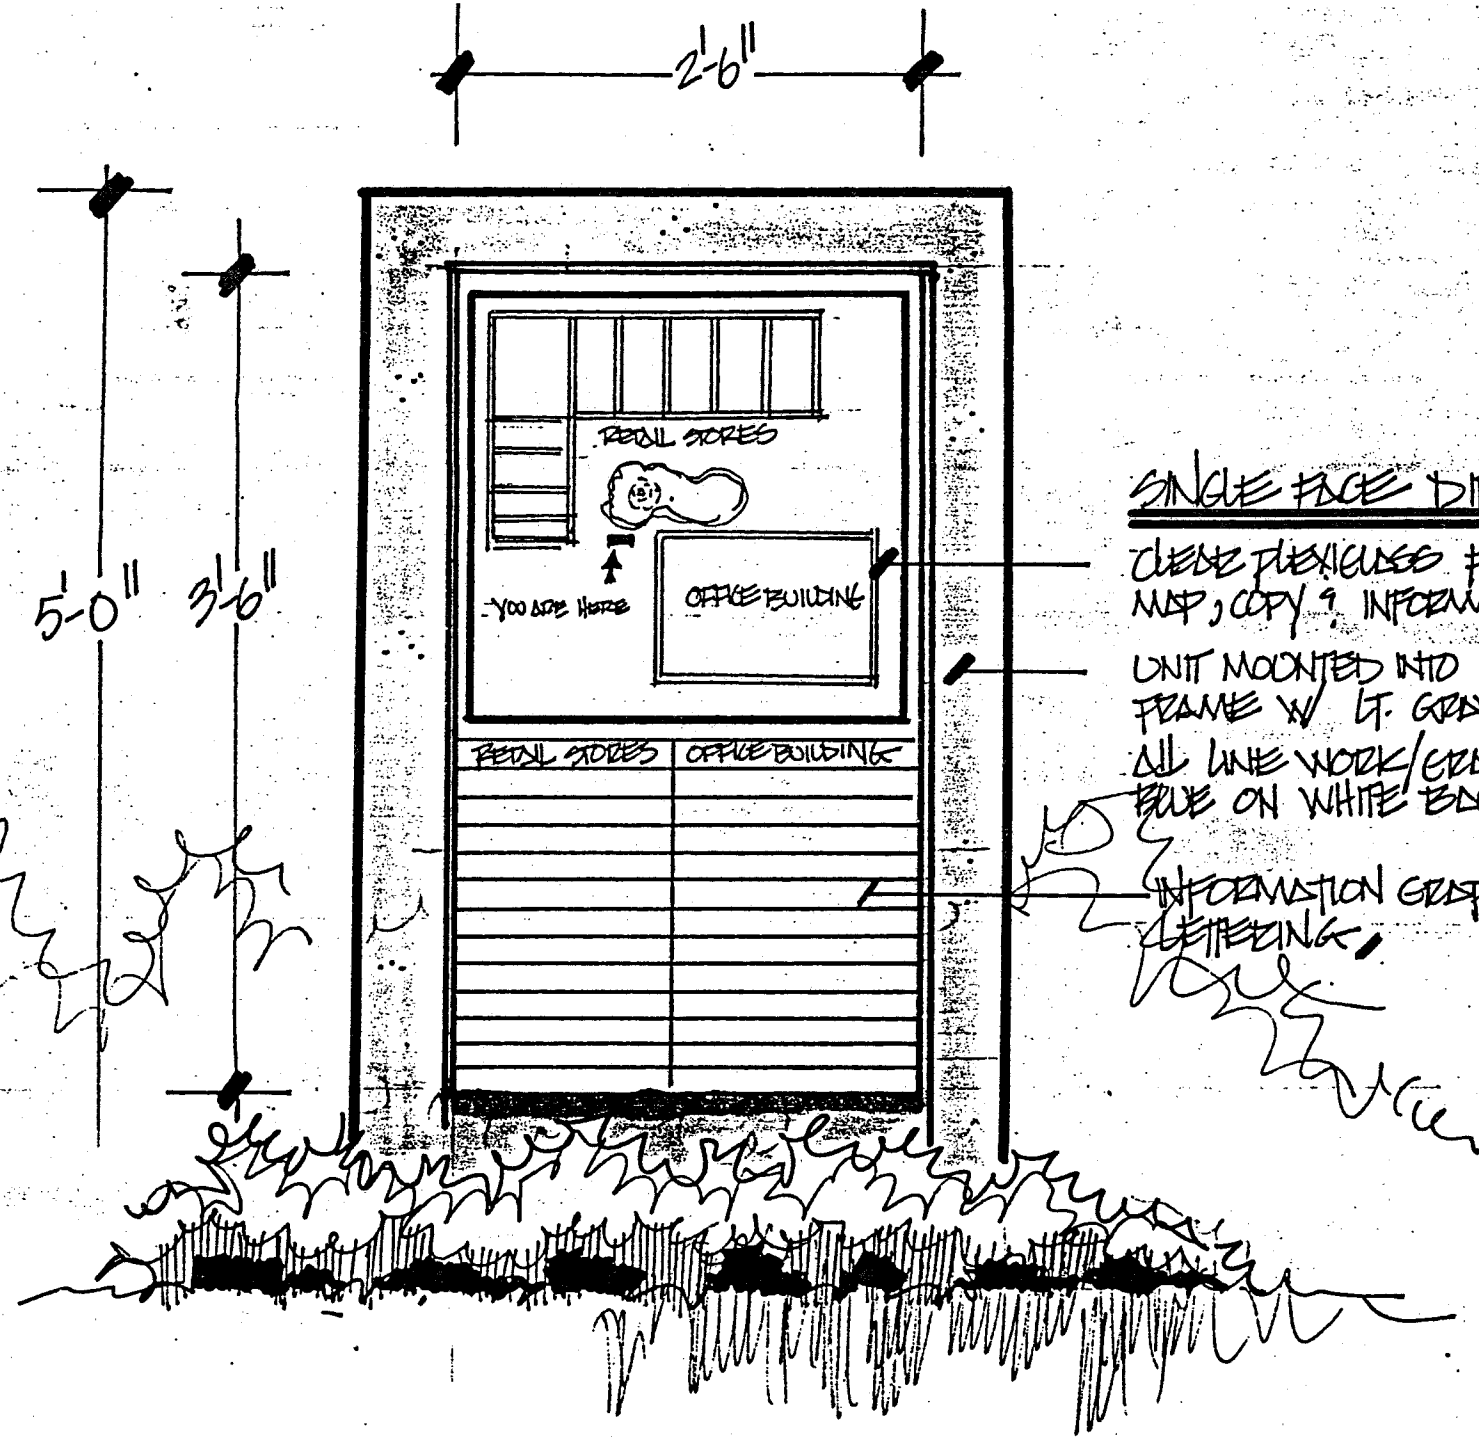 2'-6"
5'-0"
3'-6"
RETAIL STORES
YOU ARE HERE
OFFICE BUILDING
RETAIL STORES OFFICE BUILDING
SINGLE FACE DI
CLEAR PLEXIGLASS F
MAP, COPY & INFORM
UNIT MOUNTED INTO
FRAME W/ LT. GRA
ALL LINE WORK/GRA
BLUE ON WHITE BA
INFORMATION GRAP
LETTERING